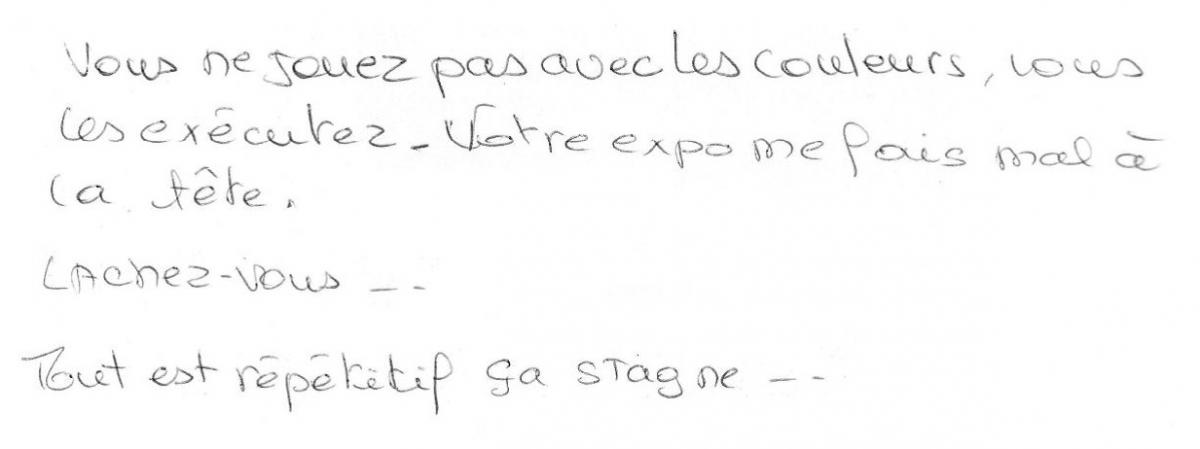 Vous ne jouez pas avec les couleurs, vous
les exécutez - Votre expo me fais mal à
la tête.
LAchez-vous --
Tout est répétitif ça sTagne --